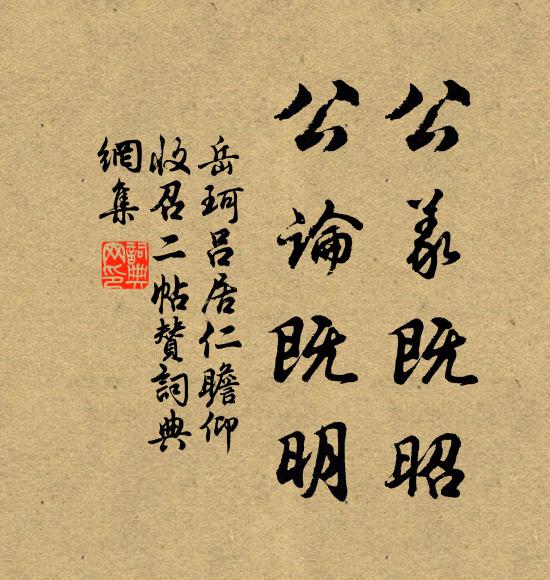 公義既昭
公論既明
岳珂呂居仁瞻仰
收召二帖贊詞典
網集
詞典
网印